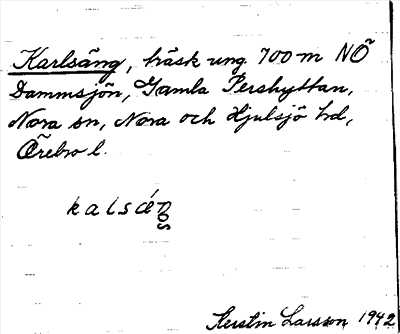 Karlsäng, träsk ung. 700 m NÖ
Dammsjön, Gamla Pershyttan,
Nora sn, Nora och Hjulsjö hd,
Örebro l.
Kerstin Larsson 1942